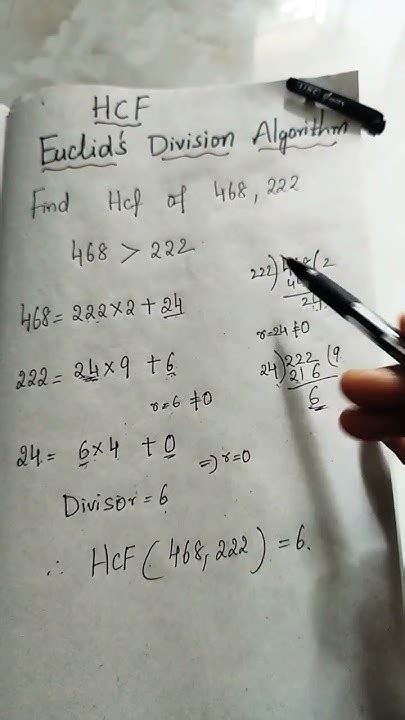 HCF
Euclid's Division Algorithm
Find Hcf of 468, 222
468 > 222
468 = 222×2 + 24
222 = 24×9 + 6
r=6 ≠0
24 = 6×4 + 0
=> r=0
Divisor = 6
∴ HCF (468, 222) = 6.
222) (2
24
r=24 ≠0
24) 222 (9
216
6